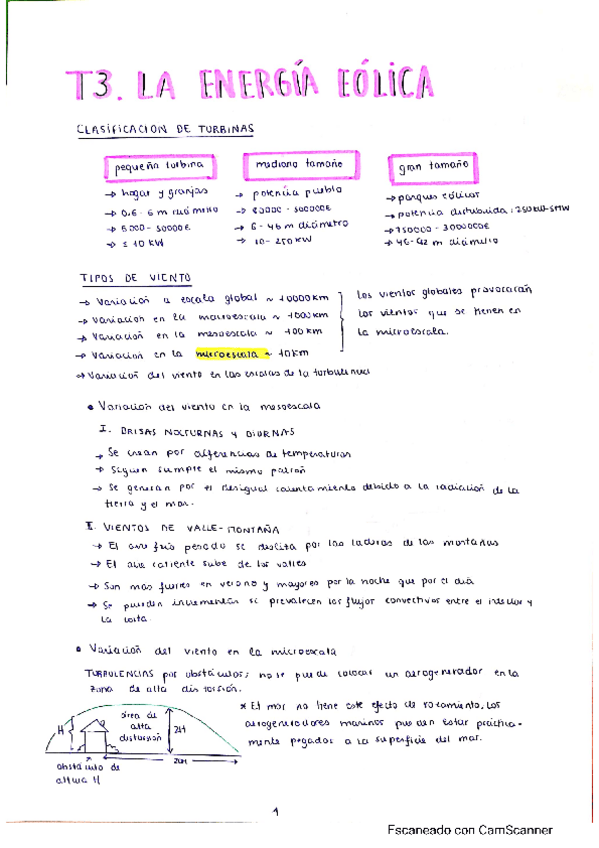 T3. LA ENERGÍA EÓLICA
CLASIFICACION DE TURBINAS
pequeña turbina
→ hogar y granjas
→ 0.6 - 6 m diámetro
→ 5000 - 50000€
→ ≤ 10 KW
mediano tamaño
→ potencia pueblo
→ 50000 - 500000€
→ 6 - 46 m diámetro
→ 10 - 250 KW
gran tamaño
→ parques eólicos
→ potencia distribuida: 250KW-5MW
→ 750000 - 3000000€
→ 46-92 m diámetro
TIPOS DE VIENTO
→ Variación a escala global ~ 10000 km
→ Variación en la macroescala ~ 1000 km
→ Variación en la mesoescala ~ 100 km
→ Variación en la microescala ~ 10 km
→ Variación del viento en las escalas de la turbulencia
Los vientos globales provocarán
los vientos que se tienen en
la microescala.
• Variación del viento en la mesoescala
I. BRISAS NOCTURNAS y DIURNAS
→ Se crean por diferencias de temperaturas
→ Siguen siempre el mismo patrón
→ Se generan por el desigual calentamiento debido a la radiación de la
tierra y el mar.
II. VIENTOS DE VALLE-MONTAÑA
→ El aire frío pesado se desliza por las laderas de las montañas
→ El aire caliente sube de los valles
→ Son mas fuertes en verano y mayores por la noche que por el día
→ Se pueden incrementar si prevalecen los flujos convectivos entre el interior y
la costa.
• Variación del viento en la microescala
TURBULENCIAS por obstáculos; no se puede colocar un aerogenerador en la
zona de alta distorsión.
* El mar no tiene este efecto de rozamiento, los
aerogeneradores marinos pueden estar práctica-
mente pegados a la superficie del mar.
área de
alta
distorsión
H
2H
20H
obstáculo de
altura H
1
Escaneado con CamScanner